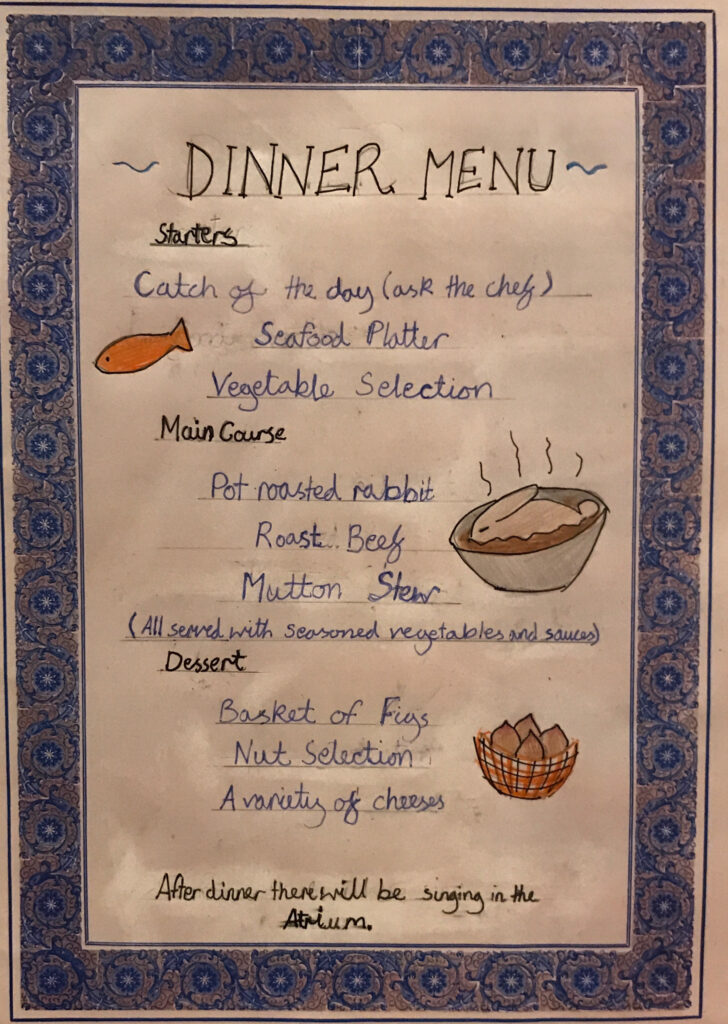 ~ DINNER MENU ~
Starters
Catch of the day (ask the chef)
Seafood Platter
Vegetable Selection
Main Course
Pot roasted rabbit
Roast Beef
Mutton Stew
(All served with seasoned vegetables and sauces)
Dessert
Basket of Figs
Nut Selection
A variety of cheeses
After dinner there will be singing in the
Atrium.